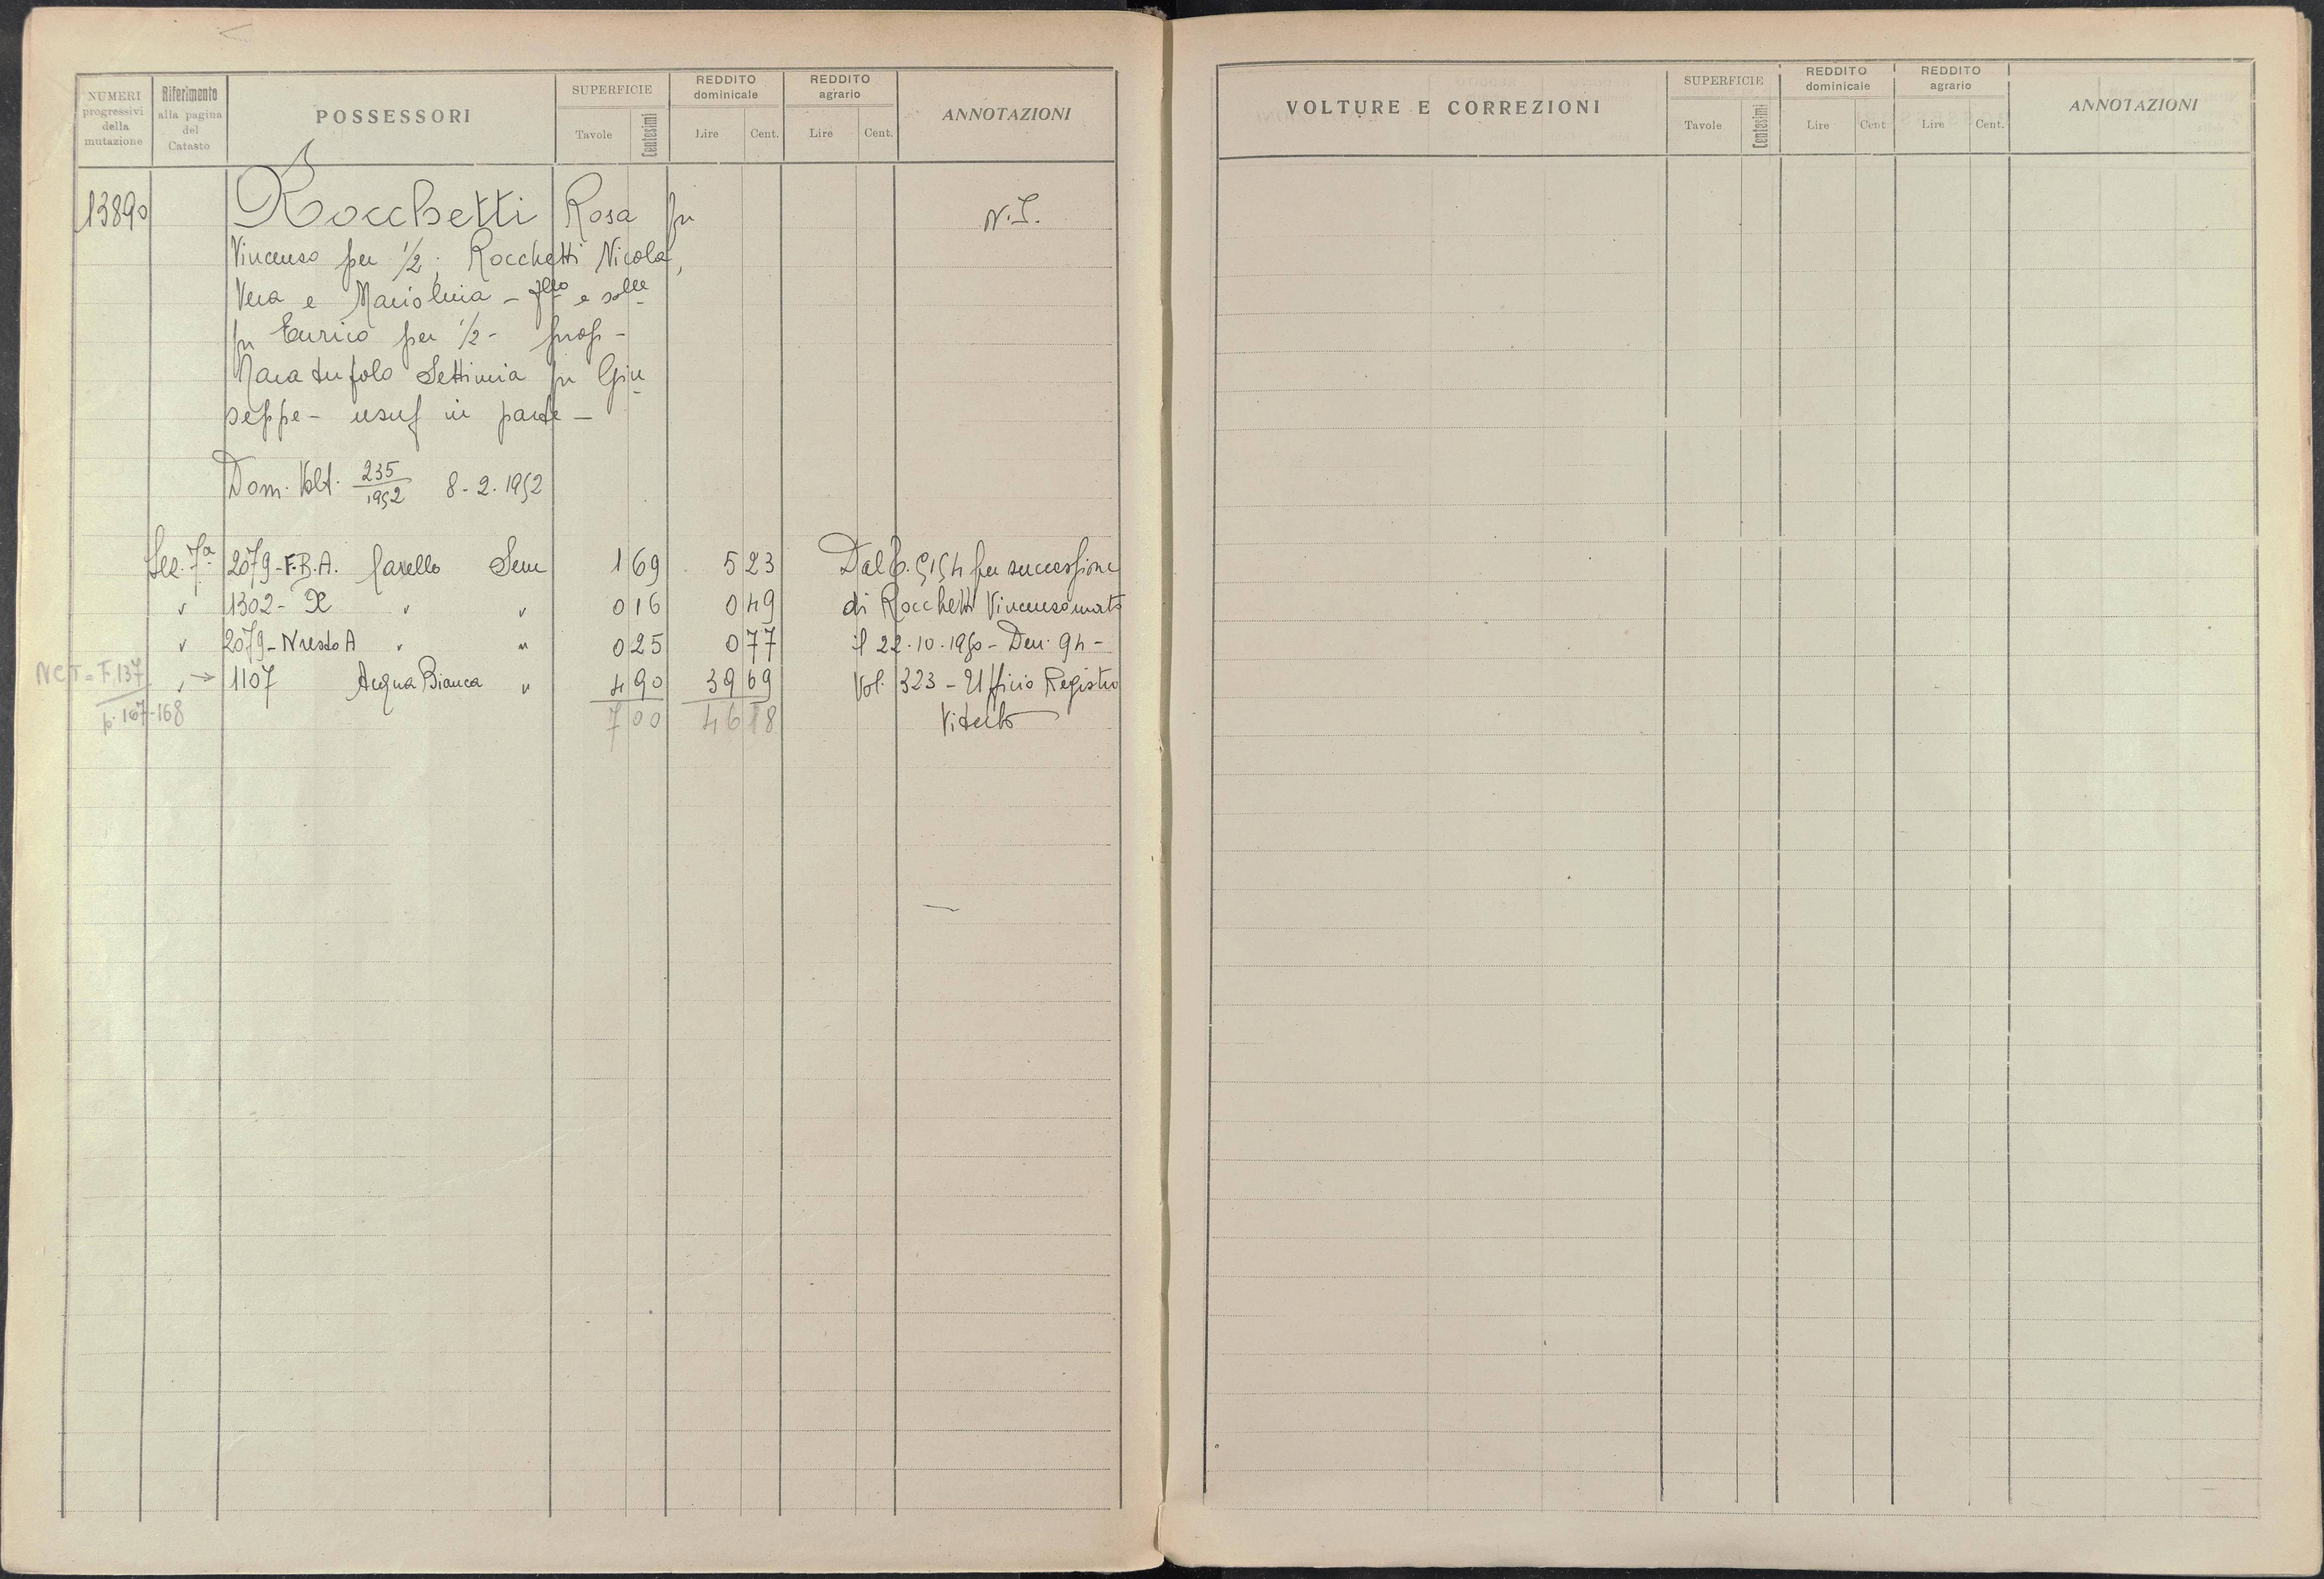 NUMERI progressivi della mutazione | Riferimento alla pagina del Catasto | POSSESSORI | SUPERFICIE Tavole Centesimi | REDDITO dominicale Lire Cent. | REDDITO agrario Lire Cent. | ANNOTAZIONI
13890 Rocchetti Rosa fu N.I.
Vincenzo per 1/2; Rocchetti Nicola,
Vera e Mariolina - fllo e solle
fu Enrico per 1/2 - prop -
Maratufolo Settimia fu Giu
seppe - usuf in parte -
Dom. Volt. 235/1952 8-2-1952
Sez. 7a 2079-F.B.A. Carello Sem 1 69 5 23 Dal P. 5154 per successione
" 1302- X " " 0 16 0 49 di Rocchetti Vincenzo morto
" 2079-N resto A " " 0 25 0 77 il 22.10.1950 - Den. 94 -
NCT = F. 137 " → 1107 Acqua Bianca " 4 90 39 69 Vol. 323 - Ufficio Registro
p. 167-168 7 00 46 18 Viterbo
VOLTURE E CORREZIONI | SUPERFICIE Tavole Centesimi | REDDITO dominicale Lire Cent | REDDITO agrario Lire Cent. | ANNOTAZIONI